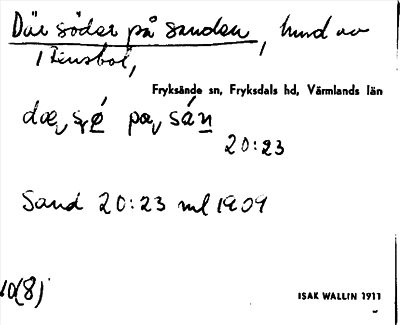 Där söder på sanden, hund av
1 Stensbol,
Fryksände sn, Fryksdals hd, Värmlands län
dæ, sǿ pa, sán
20:23
Sand 20:23 ml 1909
10(8)
ISAK WALLIN 1911